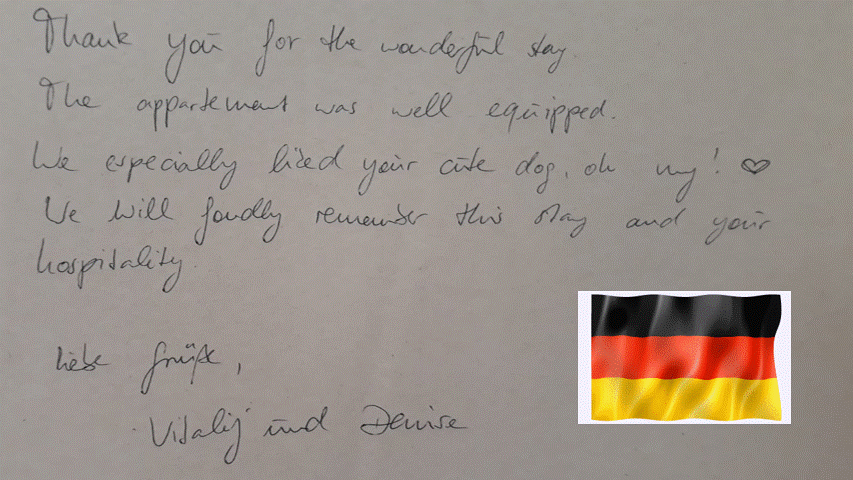 Thank you for the wonderful stay.
The appartement was well equipped.
We especially liked your cute dog, oh my! ♡
We will fondly remember this stay and your
hospitality.
Liebe Grüße,
Vitalij und Denise